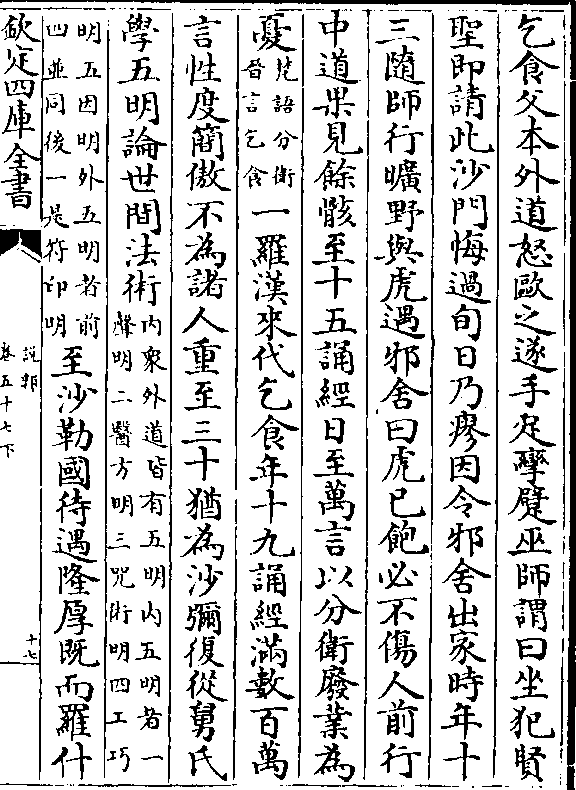 乞食父本外道怒歐之遂手足攣躄巫師謂曰坐犯賢
聖即請此沙門悔過旬日乃瘳因令邪舍出家時年十
三隨師行曠野與虎遇邪舍曰虎已飽必不傷人前行
中道果見餘骸至十五誦經日至萬言以分衛廢業為
憂梵語分衛晉言乞食一羅漢來代乞食年十九誦經滿數百萬
言性度簡傲不為諸人重至三十猶為沙彌復從舅氏
學五明論世間法術内衆外道皆有五明内五明者一聲明二醫方明三咒術明四工巧
明五因明外五明者前四並同後一是符印明至沙勒國待遇隆厚既而羅什
欽定四庫全書
説郛
卷五十七下
十七